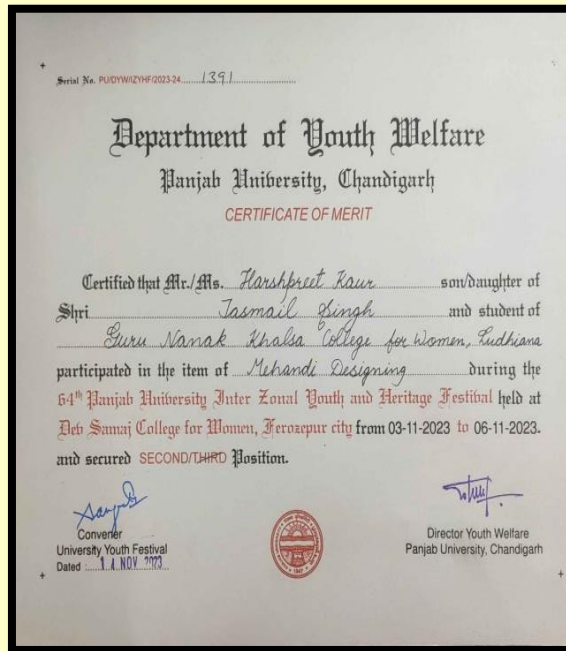 Serial No. PU/DYW/IZYHF/2023-24.......1391..............
Department of Youth Welfare
Panjab University, Chandigarh
CERTIFICATE OF MERIT
Certified that Mr./Ms. Harshpreet Kaur son/daughter of
Shri Jasmail Singh and student of
Guru Nanak Khalsa College for Women, Ludhiana
participated in the item of Mehandi Designing during the
64th Panjab University Inter Zonal Youth and Heritage Festival held at
Dev Samaj College for Women, Ferozepur city from 03-11-2023 to 06-11-2023.
and secured SECOND/THIRD Position.
Convener
University Youth Festival
Dated : 14 NOV 2023
Director Youth Welfare
Panjab University, Chandigarh